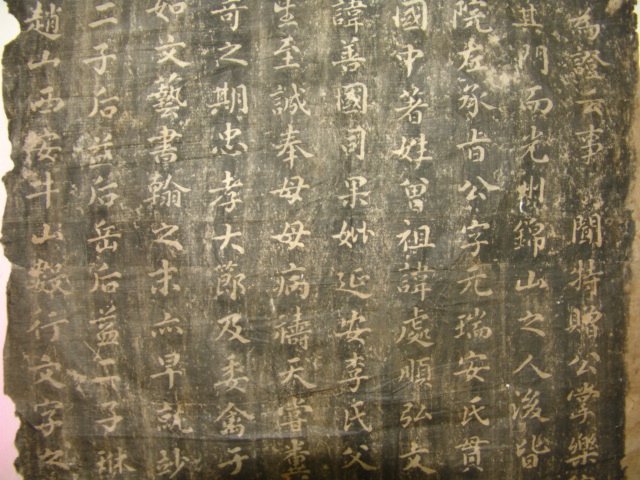 為證云事聞特贈公掌樂
其門而光州錦山之人後皆
院左承旨公字元瑞安氏貫
國中著姓曾祖諱處順弘文
諱善國司果妣延安李氏父
生至誠奉母母病禱天嘗糞
奇之期忠孝大節及委禽于
如文藝書翰之末亦早就妙
二子后益后岳后益二子琳
趙山西安牛山數行文字之